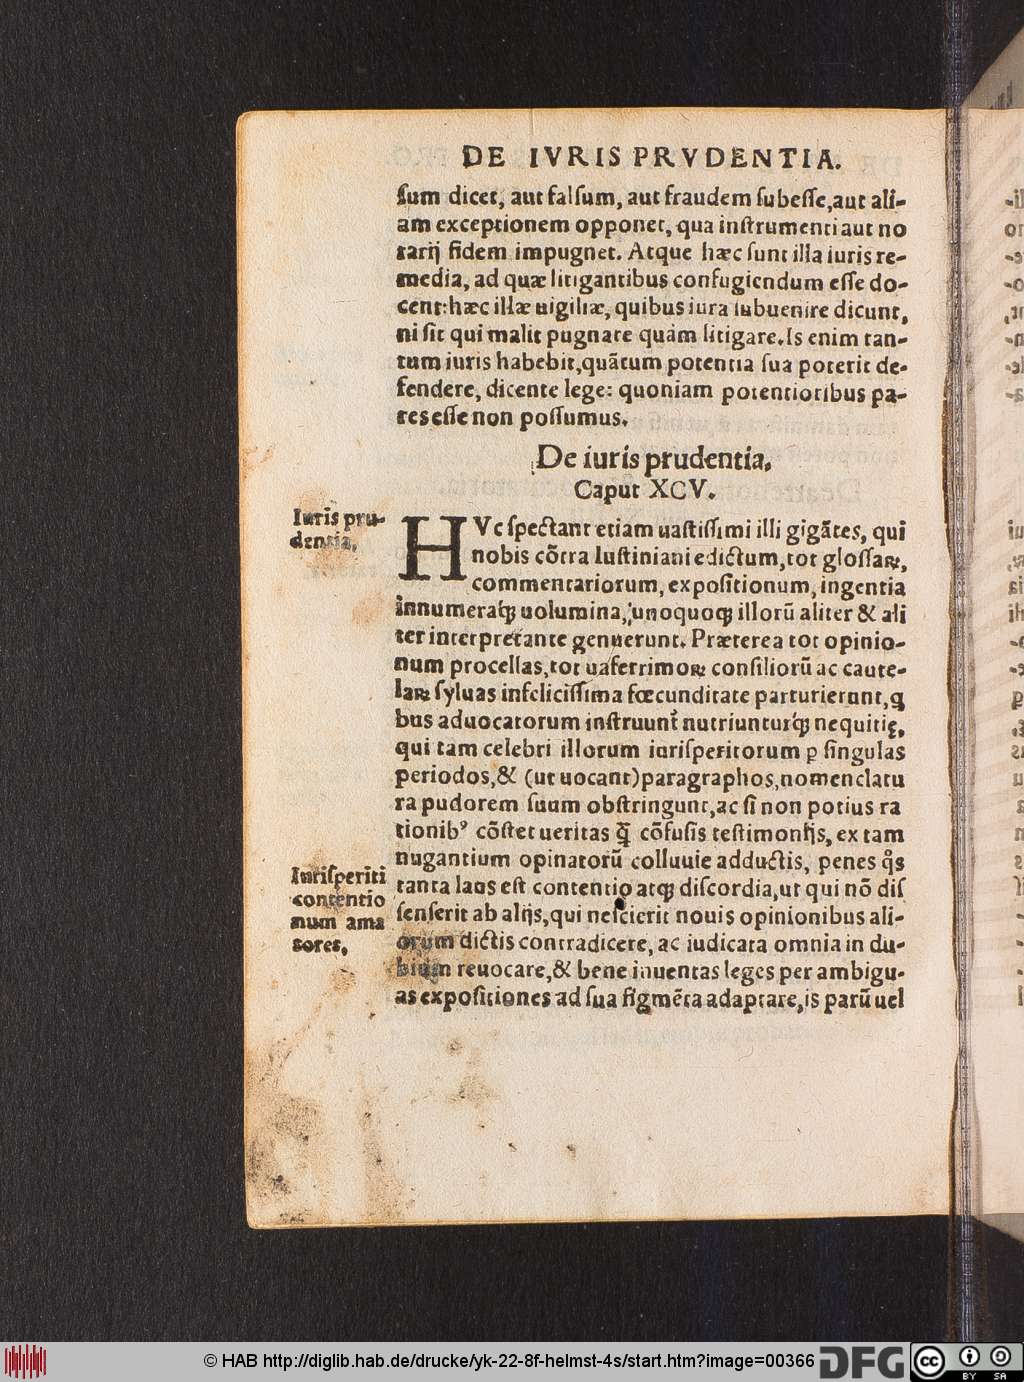 DE IVRIS PRVDENTIA.
sum dicet, aut falsum, aut fraudem subesse, aut ali-
am exceptionem opponet, qua instrumenti aut no
tarij fidem impugnet. Atque hæc sunt illa iuris re-
media, ad quæ litigantibus confugiendum esse do-
cent: hæc illæ uigiliæ, quibus iura subuenire dicunt,
ni sit qui malit pugnare quàm litigare. Is enim tan-
tum iuris habebit, quãtum potentia sua poterit de-
fendere, dicente lege: quoniam potentioribus pa-
res esse non possumus.
De iuris prudentia.
Caput XCV.
Iuris pru-
dentia.
HVc spectant etiam uastissimi illi gigãtes, qui
nobis cõtra Iustiniani edictum, tot glossaꝝ,
commentariorum, expositionum, ingentia
innumeraꝗ uolumina, unoquoꝗ illorũ aliter & ali
ter interpretante genuerunt. Præterea tot opinio-
num procellas, tot uaferrimoꝝ consiliorũ ac caute-
laꝝ syluas infelicissima fœcunditate parturierunt, ꝗ
bus aduocatorum instruunt̃ nutriunturꝗ nequitię,
qui tam celebri illorum iurisperitorum ꝑ singulas
periodos, & (ut uocant) paragraphos, nomenclatu
ra pudorem suum obstringunt, ac si non potius ra
tionibꝰ cõstet ueritas ꝗ̃ cõfusis testimonijs, ex tam
nugantium opinatorũ colluuie adductis, penes ꝗ̊s
tanta laus est contentio atꝗ discordia, ut qui nõ dis
senserit ab alijs, qui nescierit nouis opinionibus ali-
orum dictis contradicere, ac iudicata omnia in du-
bium reuocare, & bene inuentas leges per ambigu-
as expositiones ad sua figmẽta adaptare, is parũ uel
Iurisperiti
contentio
num ama
tores.
© HAB http://diglib.hab.de/drucke/yk-22-8f-helmst-4s/start.htm?image=00366
DFG
cc
BY SA